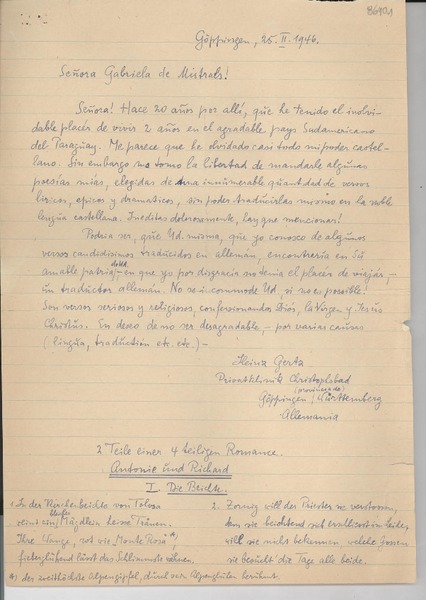 86901
Göppingen, 25. II. 1946.
Señora Gabriela de Mistrals!
Señora! Hace 20 años por allí, que he tenido el inolvi-
dable placér de vivir 2 años en el agradable pays Sudamericano
del Paraguay. Me parece que he olvidado casi todo mi poder castel-
lano. Sin embargo me tomo la libertad de mandarle algunas
poesías mías, elegidas de una innúmerable quantidad de versos
líricos, epicos y dramaticos, sin poder traducirlas mismo en la noble
lengua castellana. Ineditas dolorosamente, hay que mencionar!
Podría ser, que Ud. misma, que yo conosco de algunos
versos candidisimos traducidos en allemán, encontraría en Su
amable patria, en que yo por disgracia no tenía el placér de viajár,
un traductor allemán. No se incommode Ud, si no es possible!
Son versos seriosos y religiosos, confesionandos Dios, la Virgen y Jesús
Christus. En deseo de no ser desagradable, - por varias causas
(lingua, traduction etc. etc.) -
Heinz Gerta
Privatklinik Christophsbad
(provincia de)
Göppingen / Württemberg
Allemania
2 Teile einer 4 teiligen Romance.
Antonie und Richard
I. Die Beichte.
1. In der Kirchenbeichte von Tolosa
weint ein Mägdlein heisse Tränen.
Ihre Wange, rot wie Monte Rosa *),
fieberglühend lässt das Schlimmste wähnen.
2. Zornig will der Priester sie verstossen,
denn sie beichtend sich
will sie nicht bekennen welche
sie besucht die Tage alle beide.
*) der zweithöchste Alpengipfel, durch sein Alpenglühen berühmt.